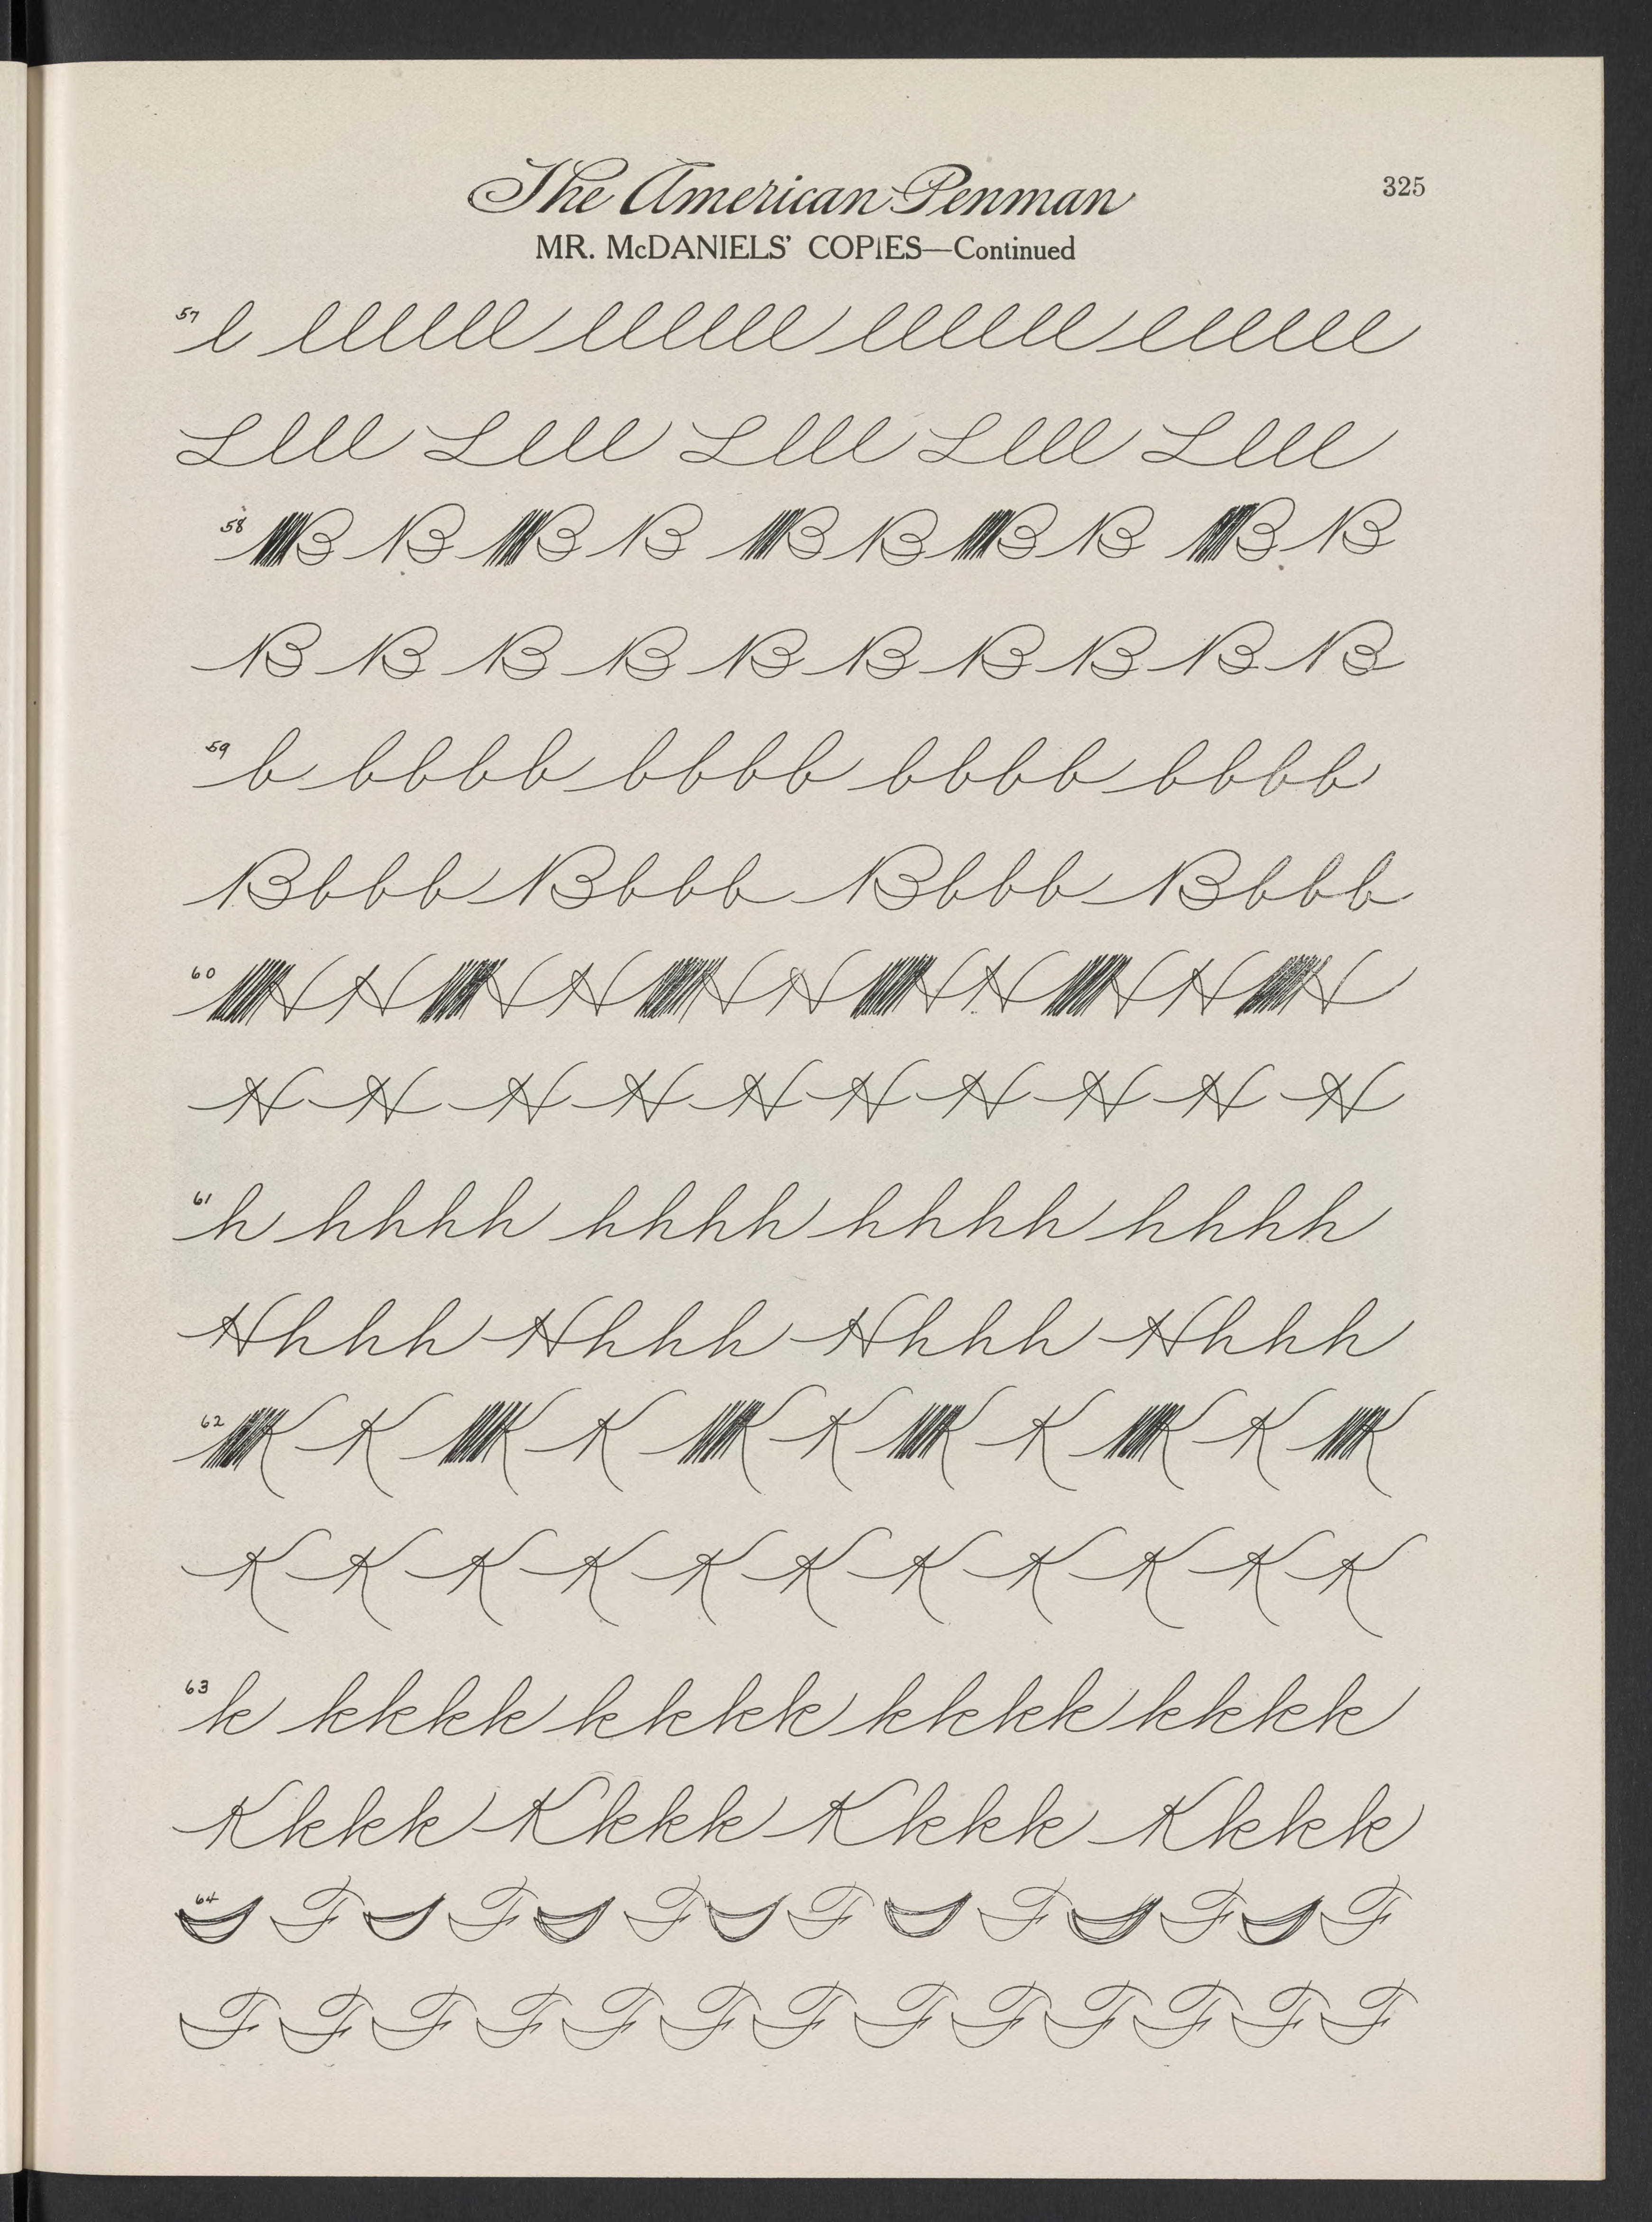 The American Penman 325
MR. McDANIELS' COPIES—Continued
57 l llllll llllll llllll llllll
Llll Llll Llll Llll Llll
58 B B B B B B B B B B
B B B B B B B B B B
59 b bbbb bbbb bbbb bbbb
Bbbb Bbbb Bbbb Bbbb
60 H H H H H H H H H H H
H H H H H H H H H H
61 h hhhh hhhh hhhh hhhh
Hhhh Hhhh Hhhh Hhhh
62 K K K K K K K K K K K
K K K K K K K K K K K
63 k kkkk kkkk kkkk kkkk
Kkkk Kkkk Kkkk Kkkk
64 F F F F F F F
F F F F F F F F F F F F F